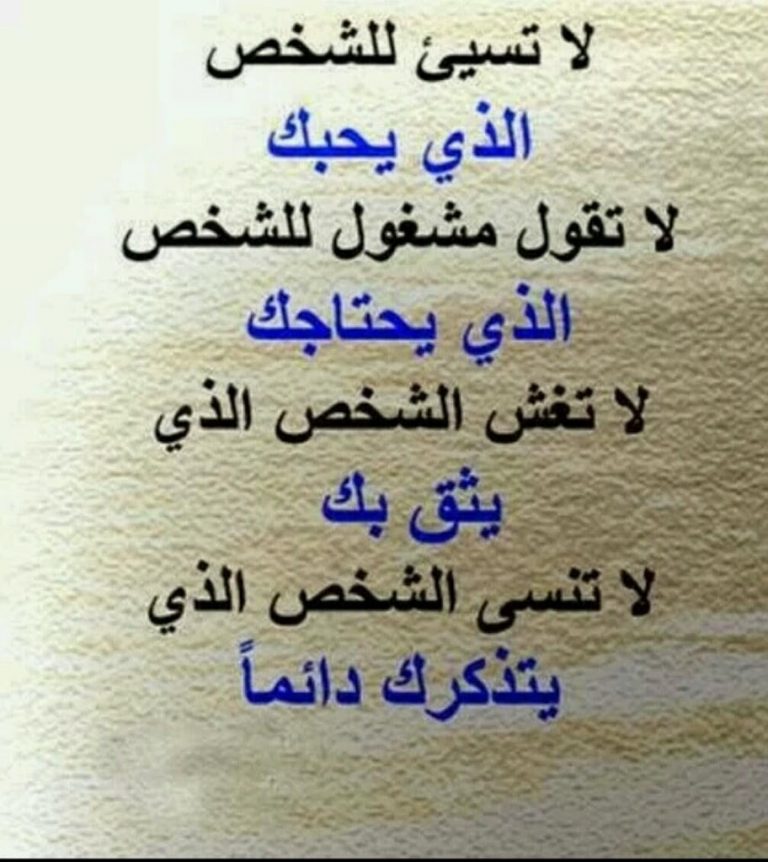 لا تسيئ للشخص
الذي يحبك
لا تقول مشغول للشخص
الذي يحتاجك
لا تغش الشخص الذي
يثق بك
لا تنسى الشخص الذي
يتذكرك دائماً